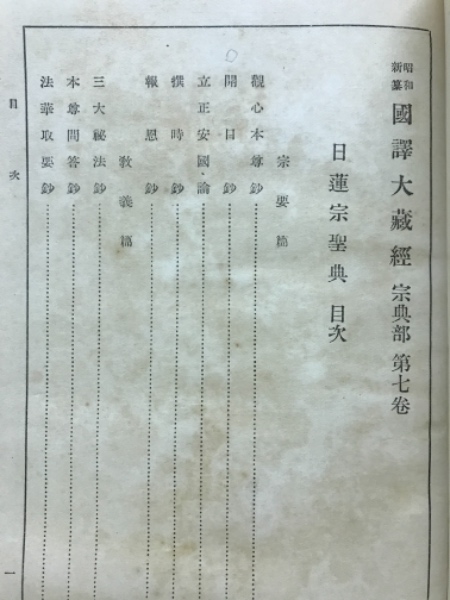 昭和新纂 國譯大藏經 宗典部 第七卷
日蓮宗聖典 目次
宗要篇
觀心本尊鈔
開目鈔
立正安國論
撰時鈔
報恩鈔
敎義篇
三大祕法鈔
本尊問答鈔
法華取要鈔
目次
一